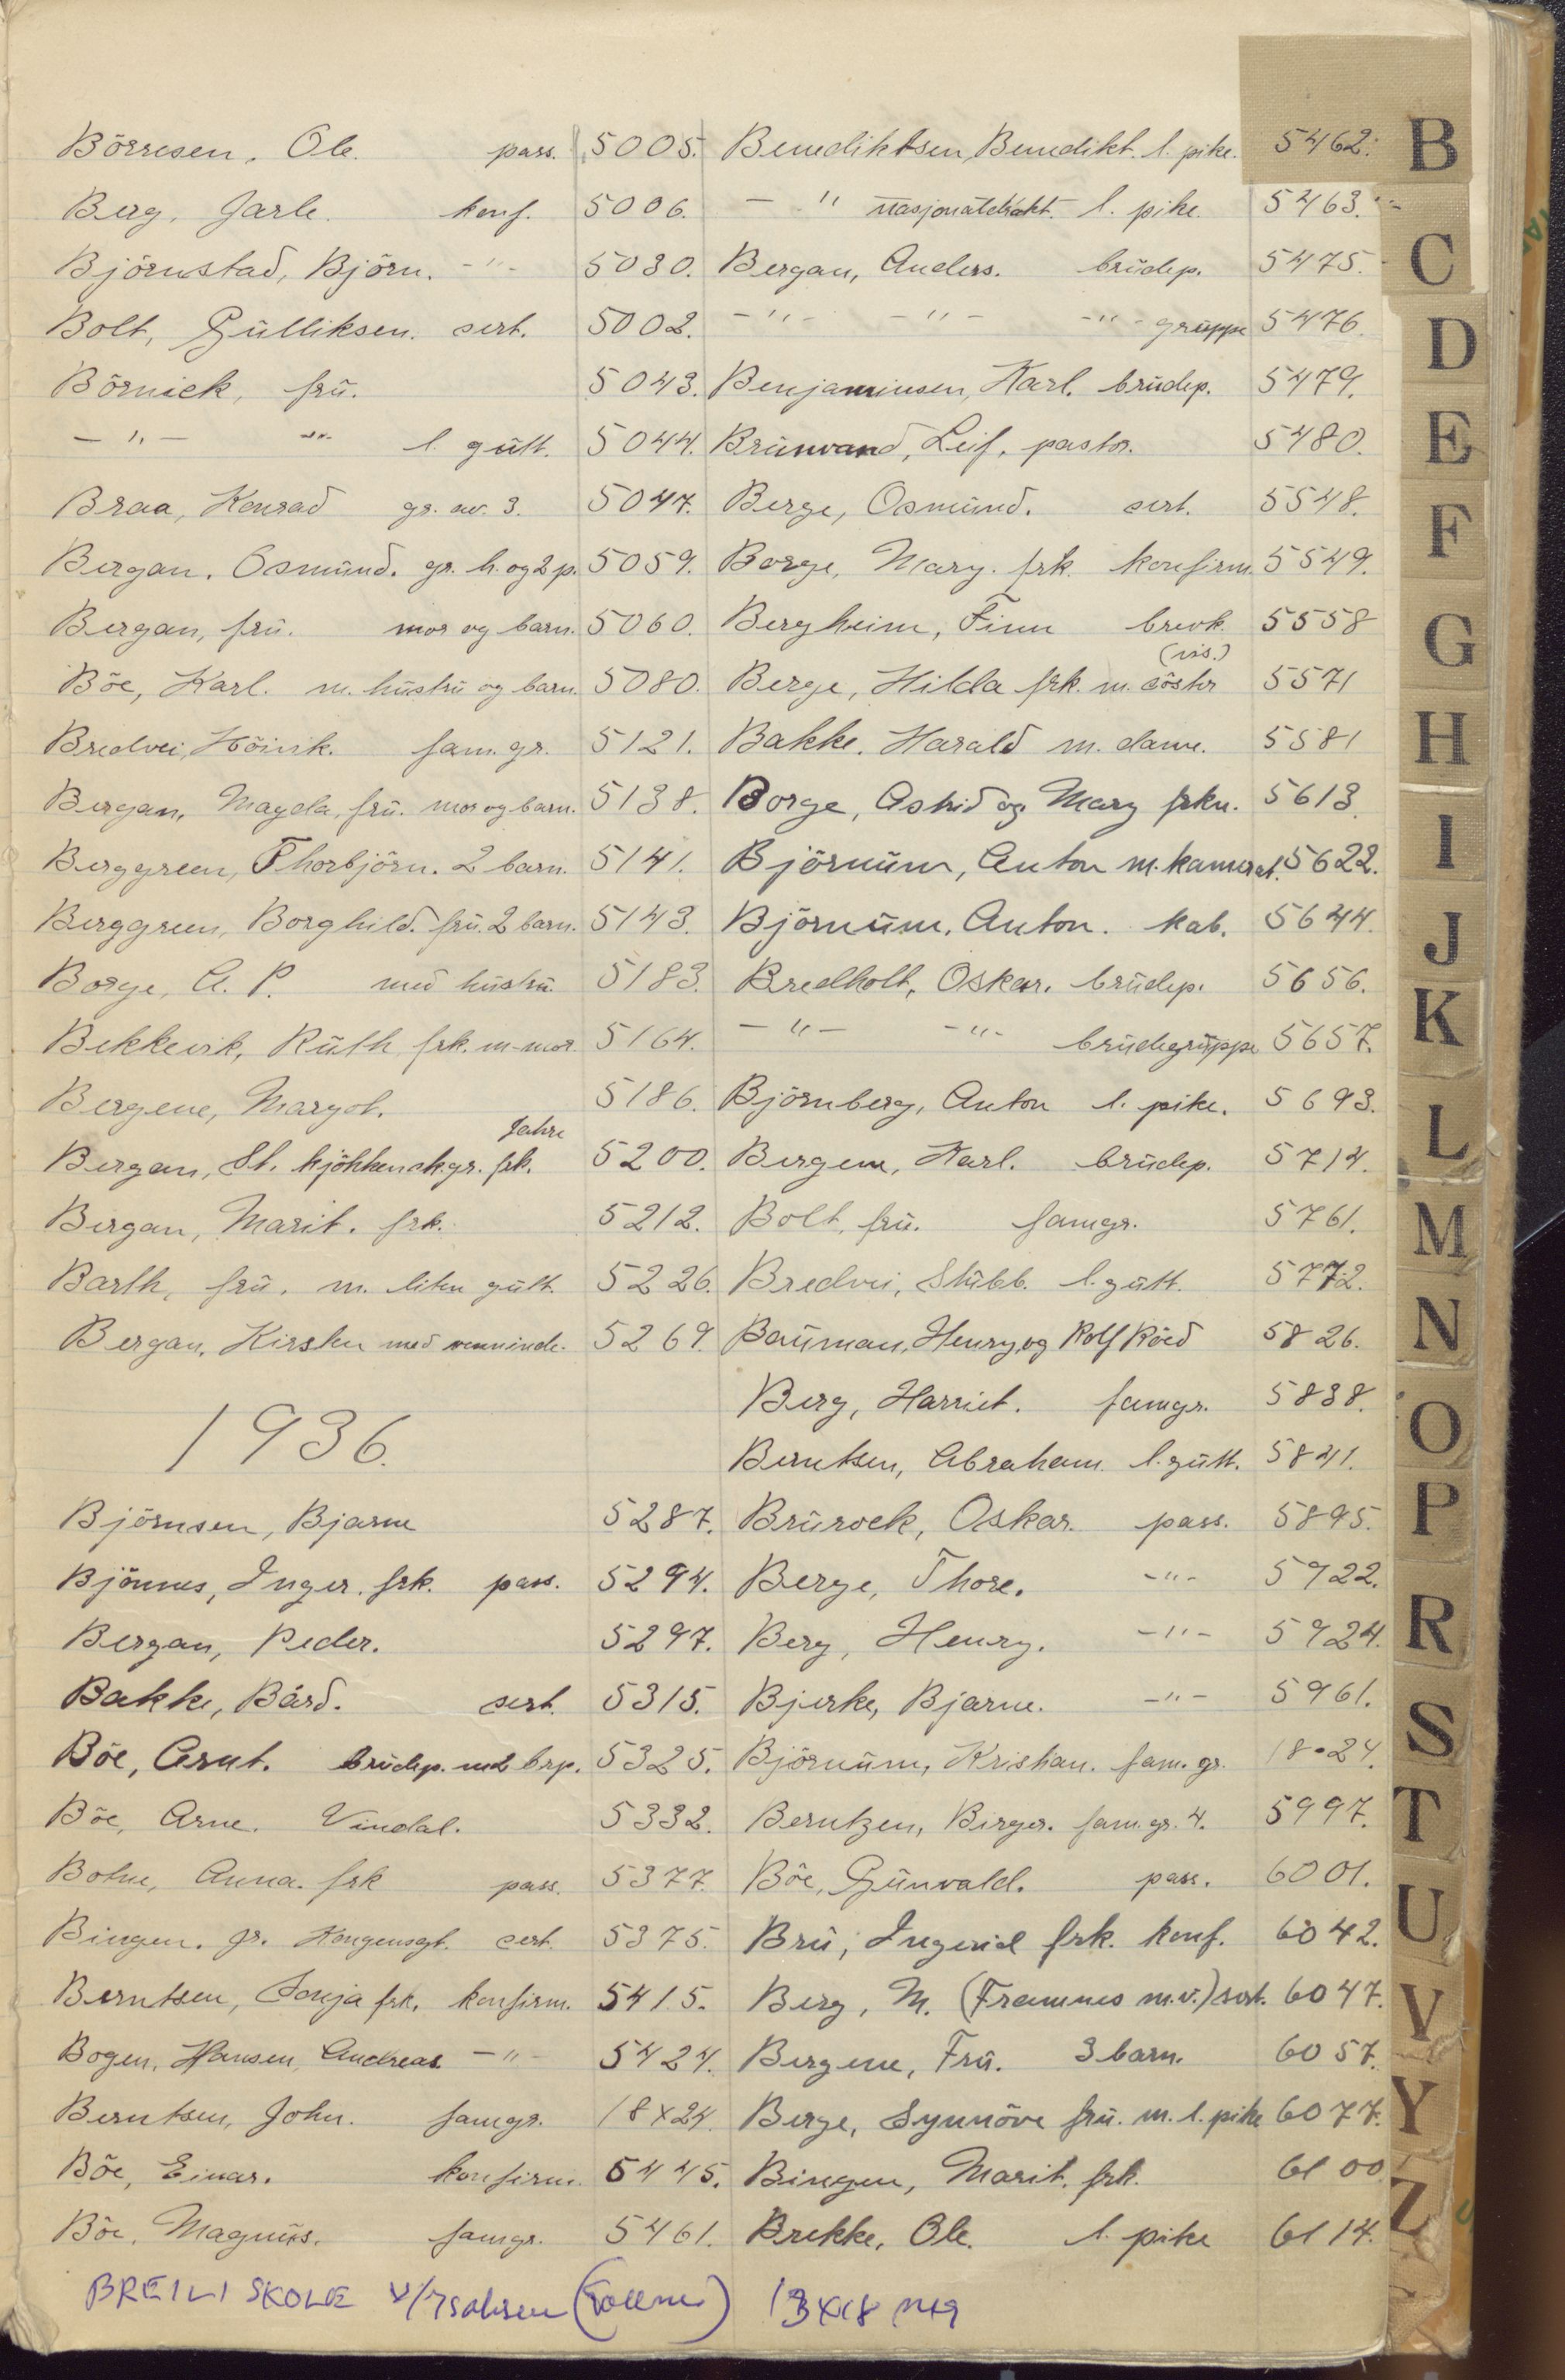 Börresen, Ole. pass. 5005.
Berg, Jarle. konf. 5006.
Björnstad, Björn. -"- 5030.
Bolt, Gulliksen. sert. 5002.
Börnick, frü. 5043.
-"- -"- l. gütt. 5044.
Braa, Konrad gr. av. 3. 5047.
Bergan, Osmünd. gr. h. og 2 p. 5059.
Bergan, frü. mor og barn. 5060.
Böe, Karl. m. hüstrü og barn. 5080.
Bredvei, Höivik. fam. gr. 5121.
Bergan, Magda, frü. mor og barn. 5138.
Berggreen, Thorbjörn. 2 barn. 5141.
Berggreen, Borghild. frü. 2 barn. 5143.
Borge, A. P. med hüstrü. 5183.
Bekkevik, Rüth frk. m-mor. 5164.
Bergene, Margot. 5186.
Jahre
Bergan, St. kjökkensk.gr. frk. 5200.
Bergan, Marit. frk. 5212.
Barth, frü. m. liten gütt. 5226.
Bergan, Kirsten med venninde. 5269.
1936.
Björnsen, Bjarne 5287.
Bjönnes, Inger. frk. pass. 5294.
Bergan, Peder. 5297.
Bakke, Bård. sert. 5315.
Böe, Arnt. brüdep. med brp. 5325.
Böe, Arne. Vindal. 5332.
Botne, Anna. frk pass. 5377.
Bingen. gr. Kongensgt. sert. 5375.
Berntsen, Sonja frk. konfirm. 5415.
Bogen, Hansen, Andreas -"- 5424.
Berntsen, John. famgr. 18x24
Böe, Einar. konfirm. 5445.
Böe, Magnüs. famgr. 5461.
Benediktsen, Benedikt. l. pike. 5462.
-"- nasjonaldrakt. l. pike. 5463.
Bergan, Anders. brüdep. 5475.
-"- -"- -"- grüppe 5476.
Benjaminsen, Karl. brüdep. 5479.
Brünvand, Leif, pastor. 5480.
Berge, Osmünd. sert. 5548.
Borge, Mary. frk. konfirm. 5549.
Bergheim, Finn brevk. 5558
(vis.)
Berge, Hilda frk. m. söster 5571
Bakke. Harald m. dame. 5581
Borge, Astrid og Mary frkn. 5613.
Björnüm, Anton m. kamerat. 5622.
Björnüm, Anton. kab. 5644.
Bredholt, Oskar. brüdep. 5656.
-"- -"- brüdegrüppe 5657.
Björnberg, Anton l. pike. 5693.
Bergene, Karl. brüdep. 5714.
Bolt, frü. famgr. 5761.
Bredvei, Stübb. l. gütt. 5772.
Baüman, Henry, og Rolf Röed 5826.
Berg, Harriet. famgr. 5838.
Berntsen, Abraham. l. gütt. 5841.
Brürock, Oskar. pass. 5895.
Berge, Thore. -"- 5922.
Berg, Henry. -"- 5924.
Bjerke, Bjarne. -"- 5961.
Björnüm, Kristian. fam. gr. 18•24.
Berntzen, Birger. fam. gr. 4. 5997.
Böe, Günvald. pass. 6001.
Brü, Ingerid frk. konf. 6042.
Berg, M. (Framnes m.v.) sert. 6047.
Bergene, Frü. 3 barn. 6057.
Berge, Synnöve frü. m. l. pike 6077.
Bingen, Marit. frk. 6100
Brekke, Ole. l. pike 6114.
BREILI SKOLE v/ Isaksen 13x18
B
C
D
E
F
G
H
I
J
K
L
M
N
O
P
R
S
T
U
V
Y
Z